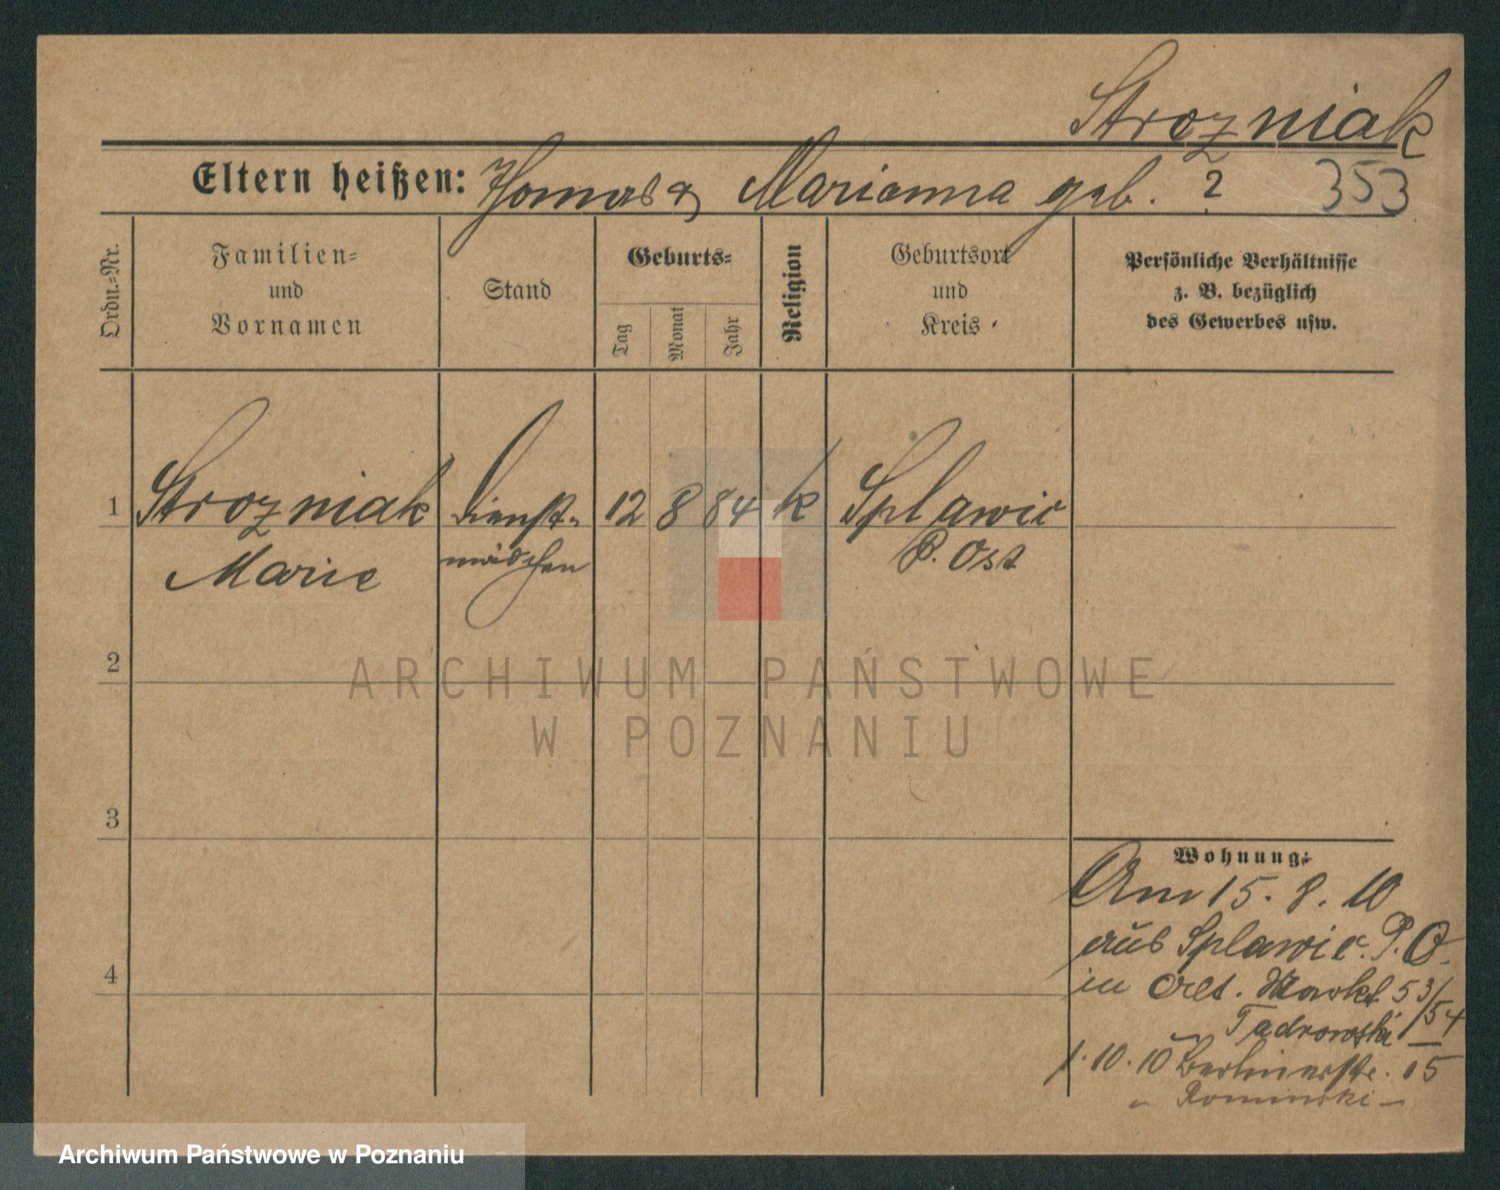 Strozniak
Eltern heißen: Thomas & Marianna geb. ?
353
Ordn.=Nr.
Familien=
und
Vornamen
Stand
Geburts=
Tag
Monat
Jahr
Religion
Geburtsort
und
Kreis
Persönliche Verhältnisse
z. B. bezüglich
des Gewerbes usw.
1
Strozniak
Marie
Dienst=
mädchen
12 8 84 k
Splawie
P. Ost
2
3
4
Wohnung:
Am 15. 8. 10
aus Splawie. P. O.
in Alt. Markt 53/54
Tadrowski
1. 10. 10 Berlinerstr. 15
Rominski
ARCHIWUM PAŃSTWOWE
W POZNANIU
Archiwum Państwowe w Poznaniu